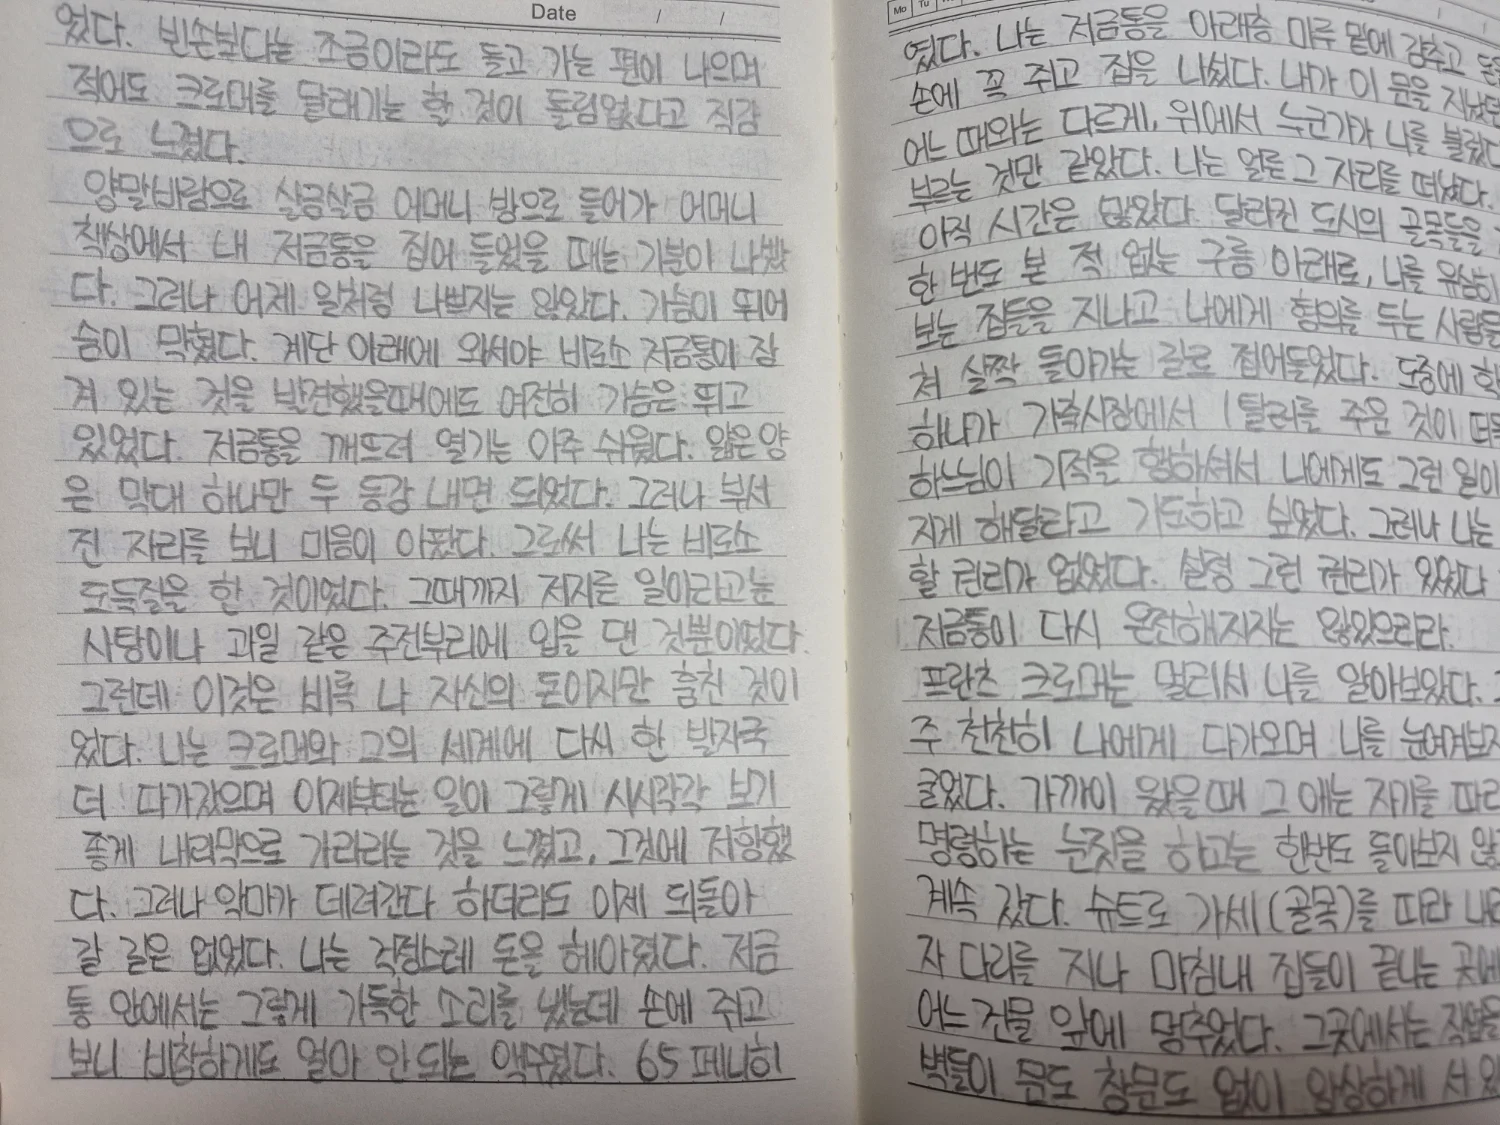 Date / /
었다. 빈손보다는 조금이라도 들고 가는 편이 나으며
적어도 크로머를 달래기는 할 것이 틀림없다고 직감
으로 느꼈다.
양말바람으로 살금살금 어머니 방으로 들어가 어머니
책상에서 내 저금통을 집어 들었을 때는 기분이 나빴
다. 그러나 어제 일처럼 나쁘지는 않았다. 가슴이 뛰어
숨이 막혔다. 계단 아래에 와서야 비로소 저금통이 잠
겨 있는 것을 발견했을때에도 여전히 가슴은 뛰고
있었다. 저금통을 깨뜨려 열기는 아주 쉬웠다. 얇은 양
은 막대 하나만 두 동강 내면 되었다. 그러나 부서
진 자리를 보니 마음이 아팠다. 그로써 나는 비로소
도둑질을 한 것이었다. 그때까지 저지른 일이라고는
사탕이나 과일 같은 주전부리에 입을 댄 것뿐이었다.
그런데 이것은 비록 나 자신의 돈이지만 훔친 것이
었다. 나는 크로머와 그의 세계에 다시 한 발자국
더 다가갔으며 이제부터는 일이 그렇게 시시각각 보기
좋게 내리막으로 가리라는 것을 느꼈고, 그것에 저항했
다. 그러나 악마가 데려간다 하더라도 이제 되돌아
갈 길은 없었다. 나는 걱정스레 돈을 헤아렸다. 저금
통 안에서는 그렇게 가득한 소리를 냈는데 손에 쥐고
보니 비참하게도 얼마 안 되는 액수였다. 65 페니히
Mo Tu
였다. 나는 저금통을 아래층 마루 밑에 감추고 돈을
손에 꼭 쥐고 집을 나섰다. 내가 이 문을 지났던
어느 때와는 다르게, 위에서 누군가가 나를 불렀다
부르는 것만 같았다. 나는 얼른 그 자리를 떠났다.
아직 시간은 많았다. 달라진 도시의 골목들을
한 번도 본 적 없는 구름 아래로, 나를 유심히
보는 집들을 지나고 나에게 혐의를 두는 사람들
쳐 살짝 돌아가는 길로 접어들었다. 도중에 학
하나가 가축시장에서 1탈러를 주운 것이 떠
하느님이 기적을 행하셔서 나에게도 그런 일이
지게 해달라고 기도하고 싶었다. 그러나 나는
할 권리가 없었다. 설령 그런 권리가 있었다
저금통이 다시 온전해지지는 않았으리라.
프란츠 크로머는 멀리서 나를 알아보았다.
주 천천히 나에게 다가오며 나를 눈여겨보지
굴었다. 가까이 왔을때 그 애는 자기를 따라
명령하는 눈짓을 하고는 한번도 돌아보지 않
계속 갔다. 슈트로 가세(골목)를 따라 내려
자 다리를 지나 마침내 집들이 끝나는 곳에
어느 건물 앞에 멈추었다. 그곳에서는 작업을
벽들이 문도 창문도 없이 앙상하게 서 있